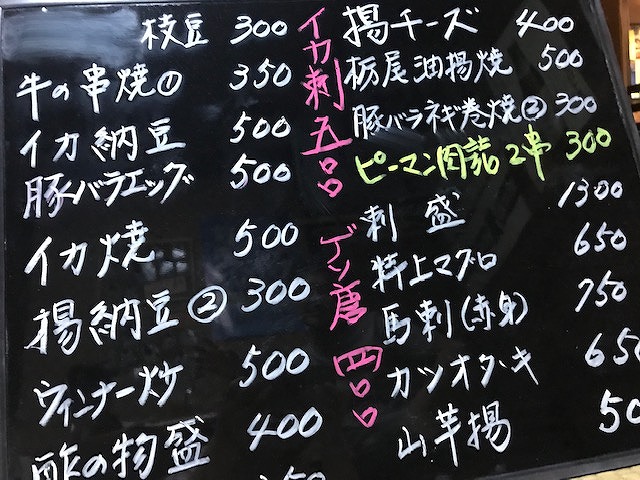 枝豆 300
牛の串焼① 350
イカ納豆 500
豚バラエッグ 500
イカ焼 500
揚納豆② 300
ウィンナー炒 500
酢の物盛 400
50
イカ刺五〇〇
ゲソ唐四〇〇
揚チーズ 400
栃尾油揚焼 500
豚バラネギ巻焼② 300
ピーマン肉詰2串 300
刺盛 1300
特上マグロ 650
馬刺(赤身) 750
カツオタタキ 65
山芋揚 50